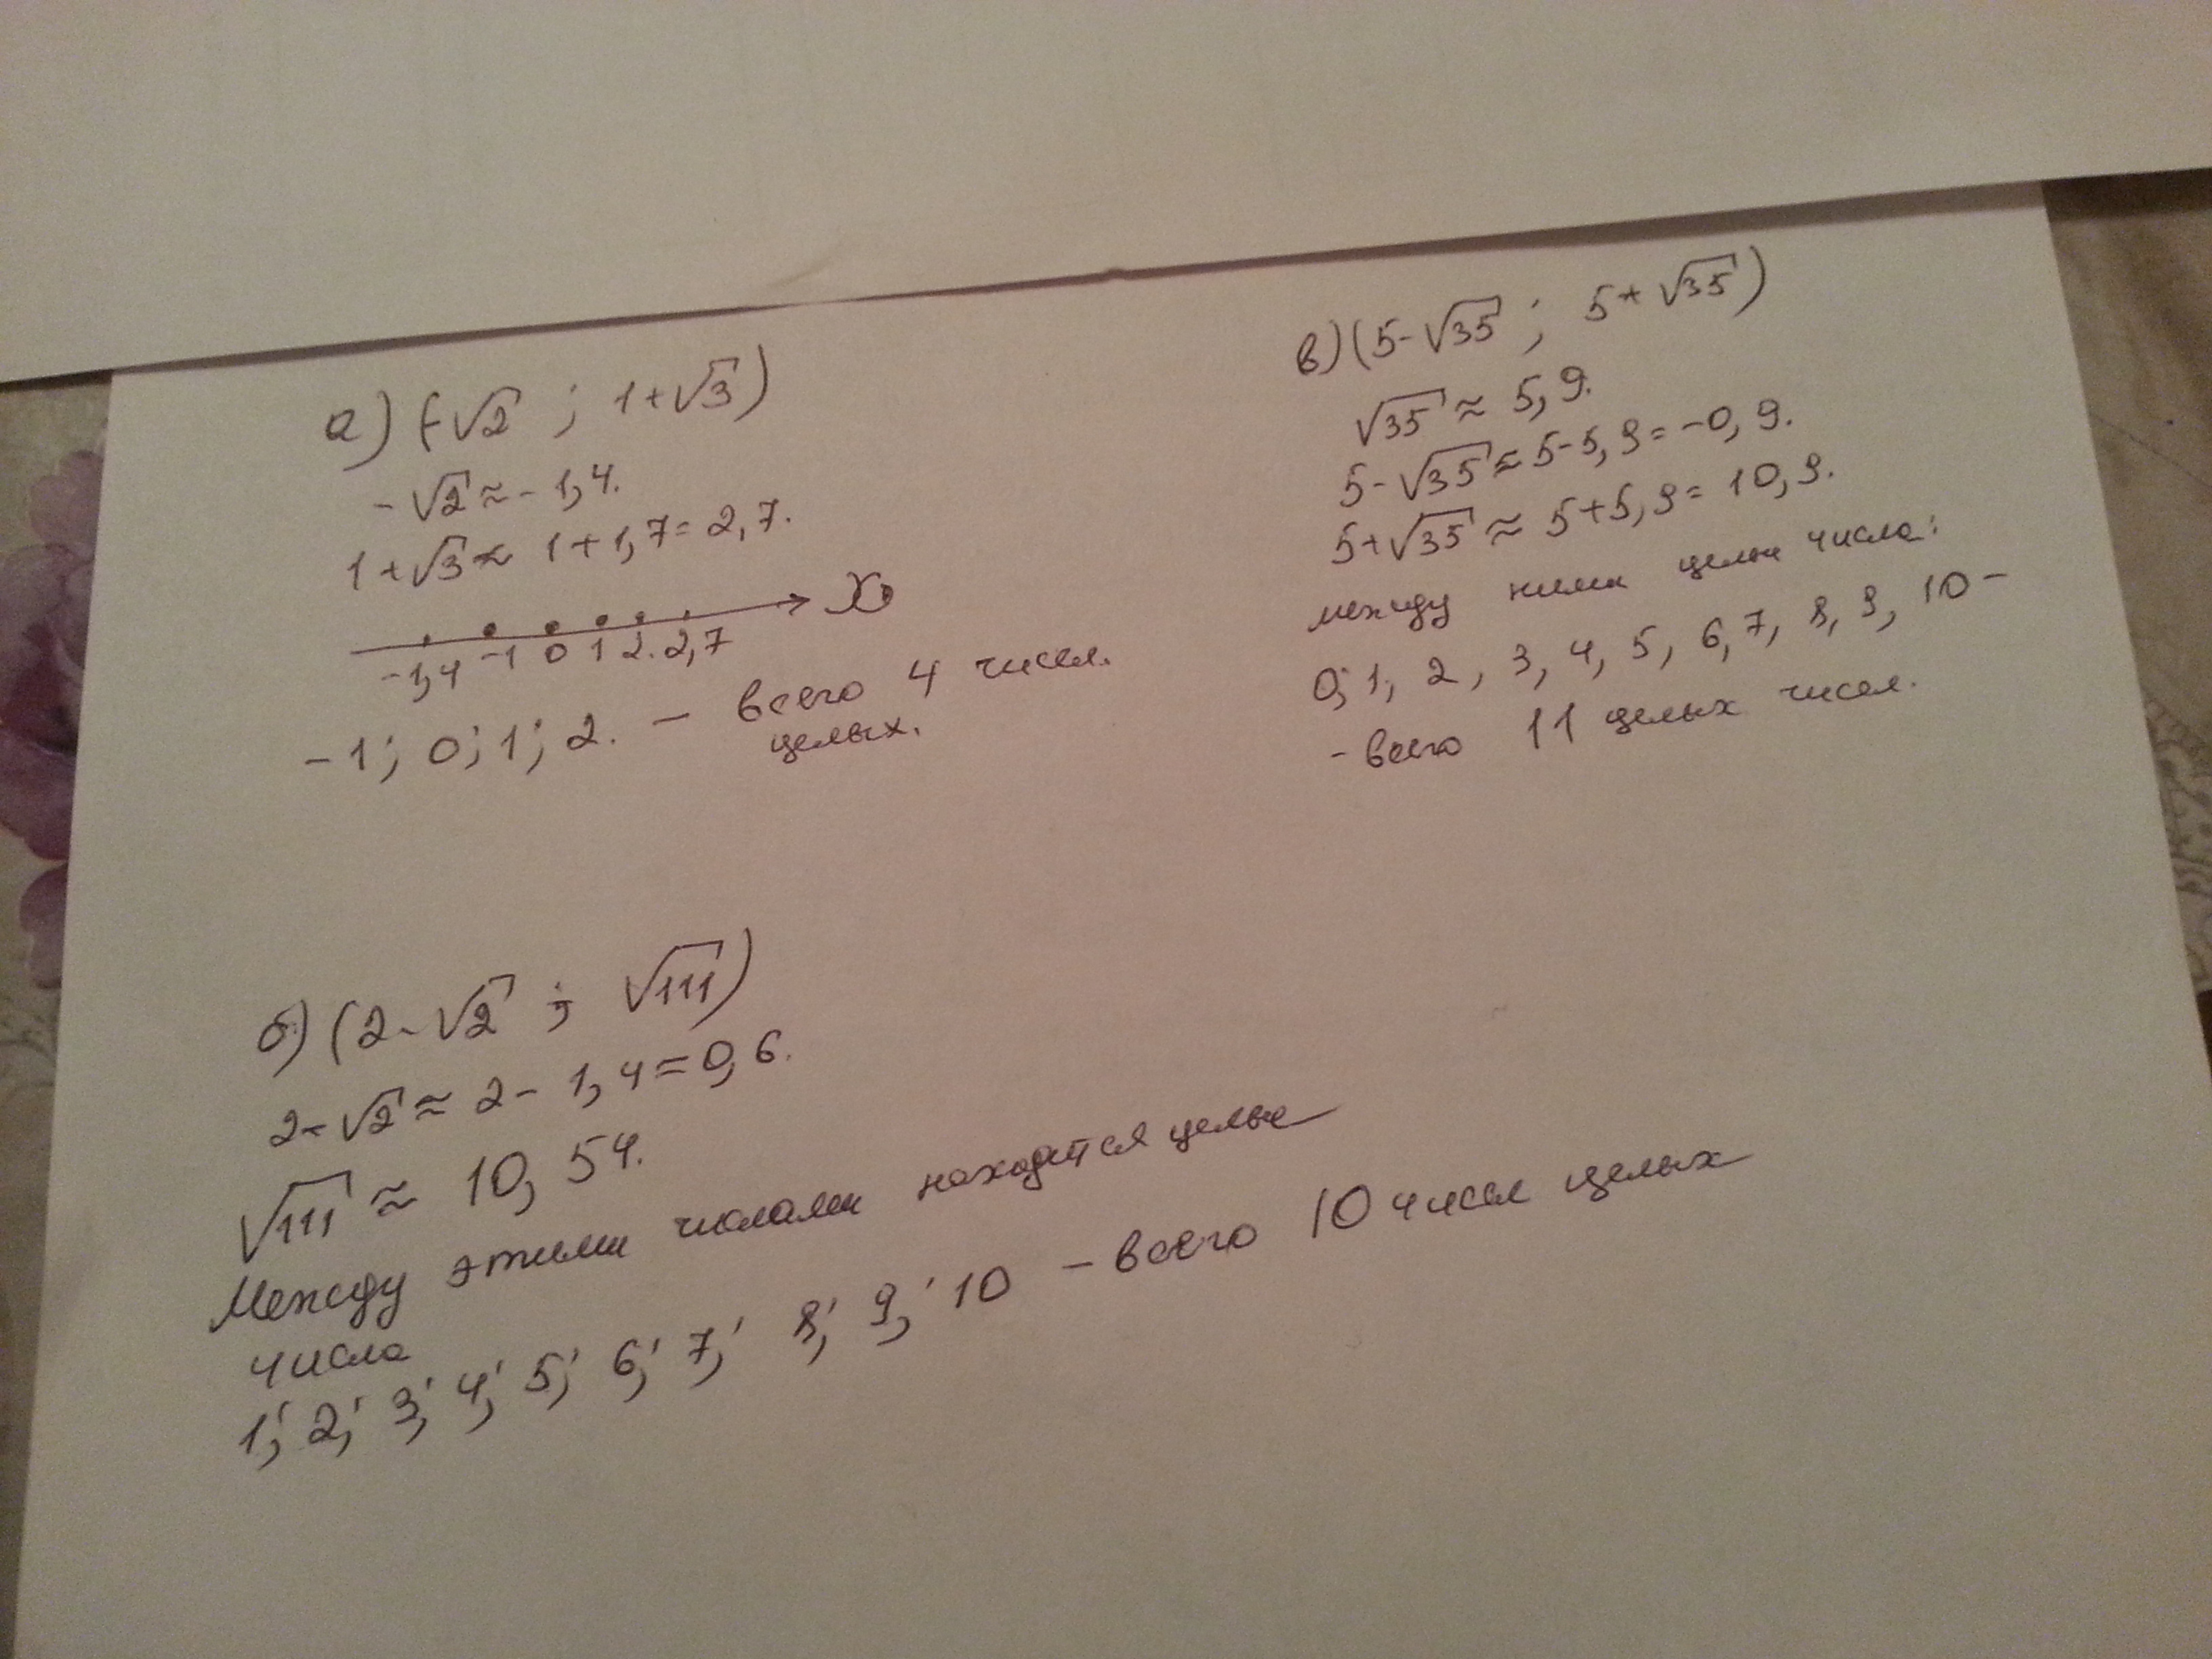 а) (-√2 ; 1+√3)
-√2 ≈ -1,4.
1+√3 ≈ 1+1,7=2,7.
X
-1,4 -1 0 1 2. 2,7
-1; 0; 1; 2. - всего 4 чисел.
целых.
в) (5-√35 ; 5+√35)
√35 ≈ 5,9.
5-√35 ≈ 5-5,9=-0,9.
5+√35 ≈ 5+5,9=10,9.
между ними целые числа:
0; 1, 2, 3, 4, 5, 6, 7, 8, 9, 10 -
- всего 11 целых чисел.
б) (2-√2 ; √111)
2-√2 ≈ 2-1,4=0,6.
√111 ≈ 10,54.
Между этими числами находятся целые
числа
1; 2; 3; 4; 5; 6; 7; 8; 9; 10 - всего 10 чисел целых